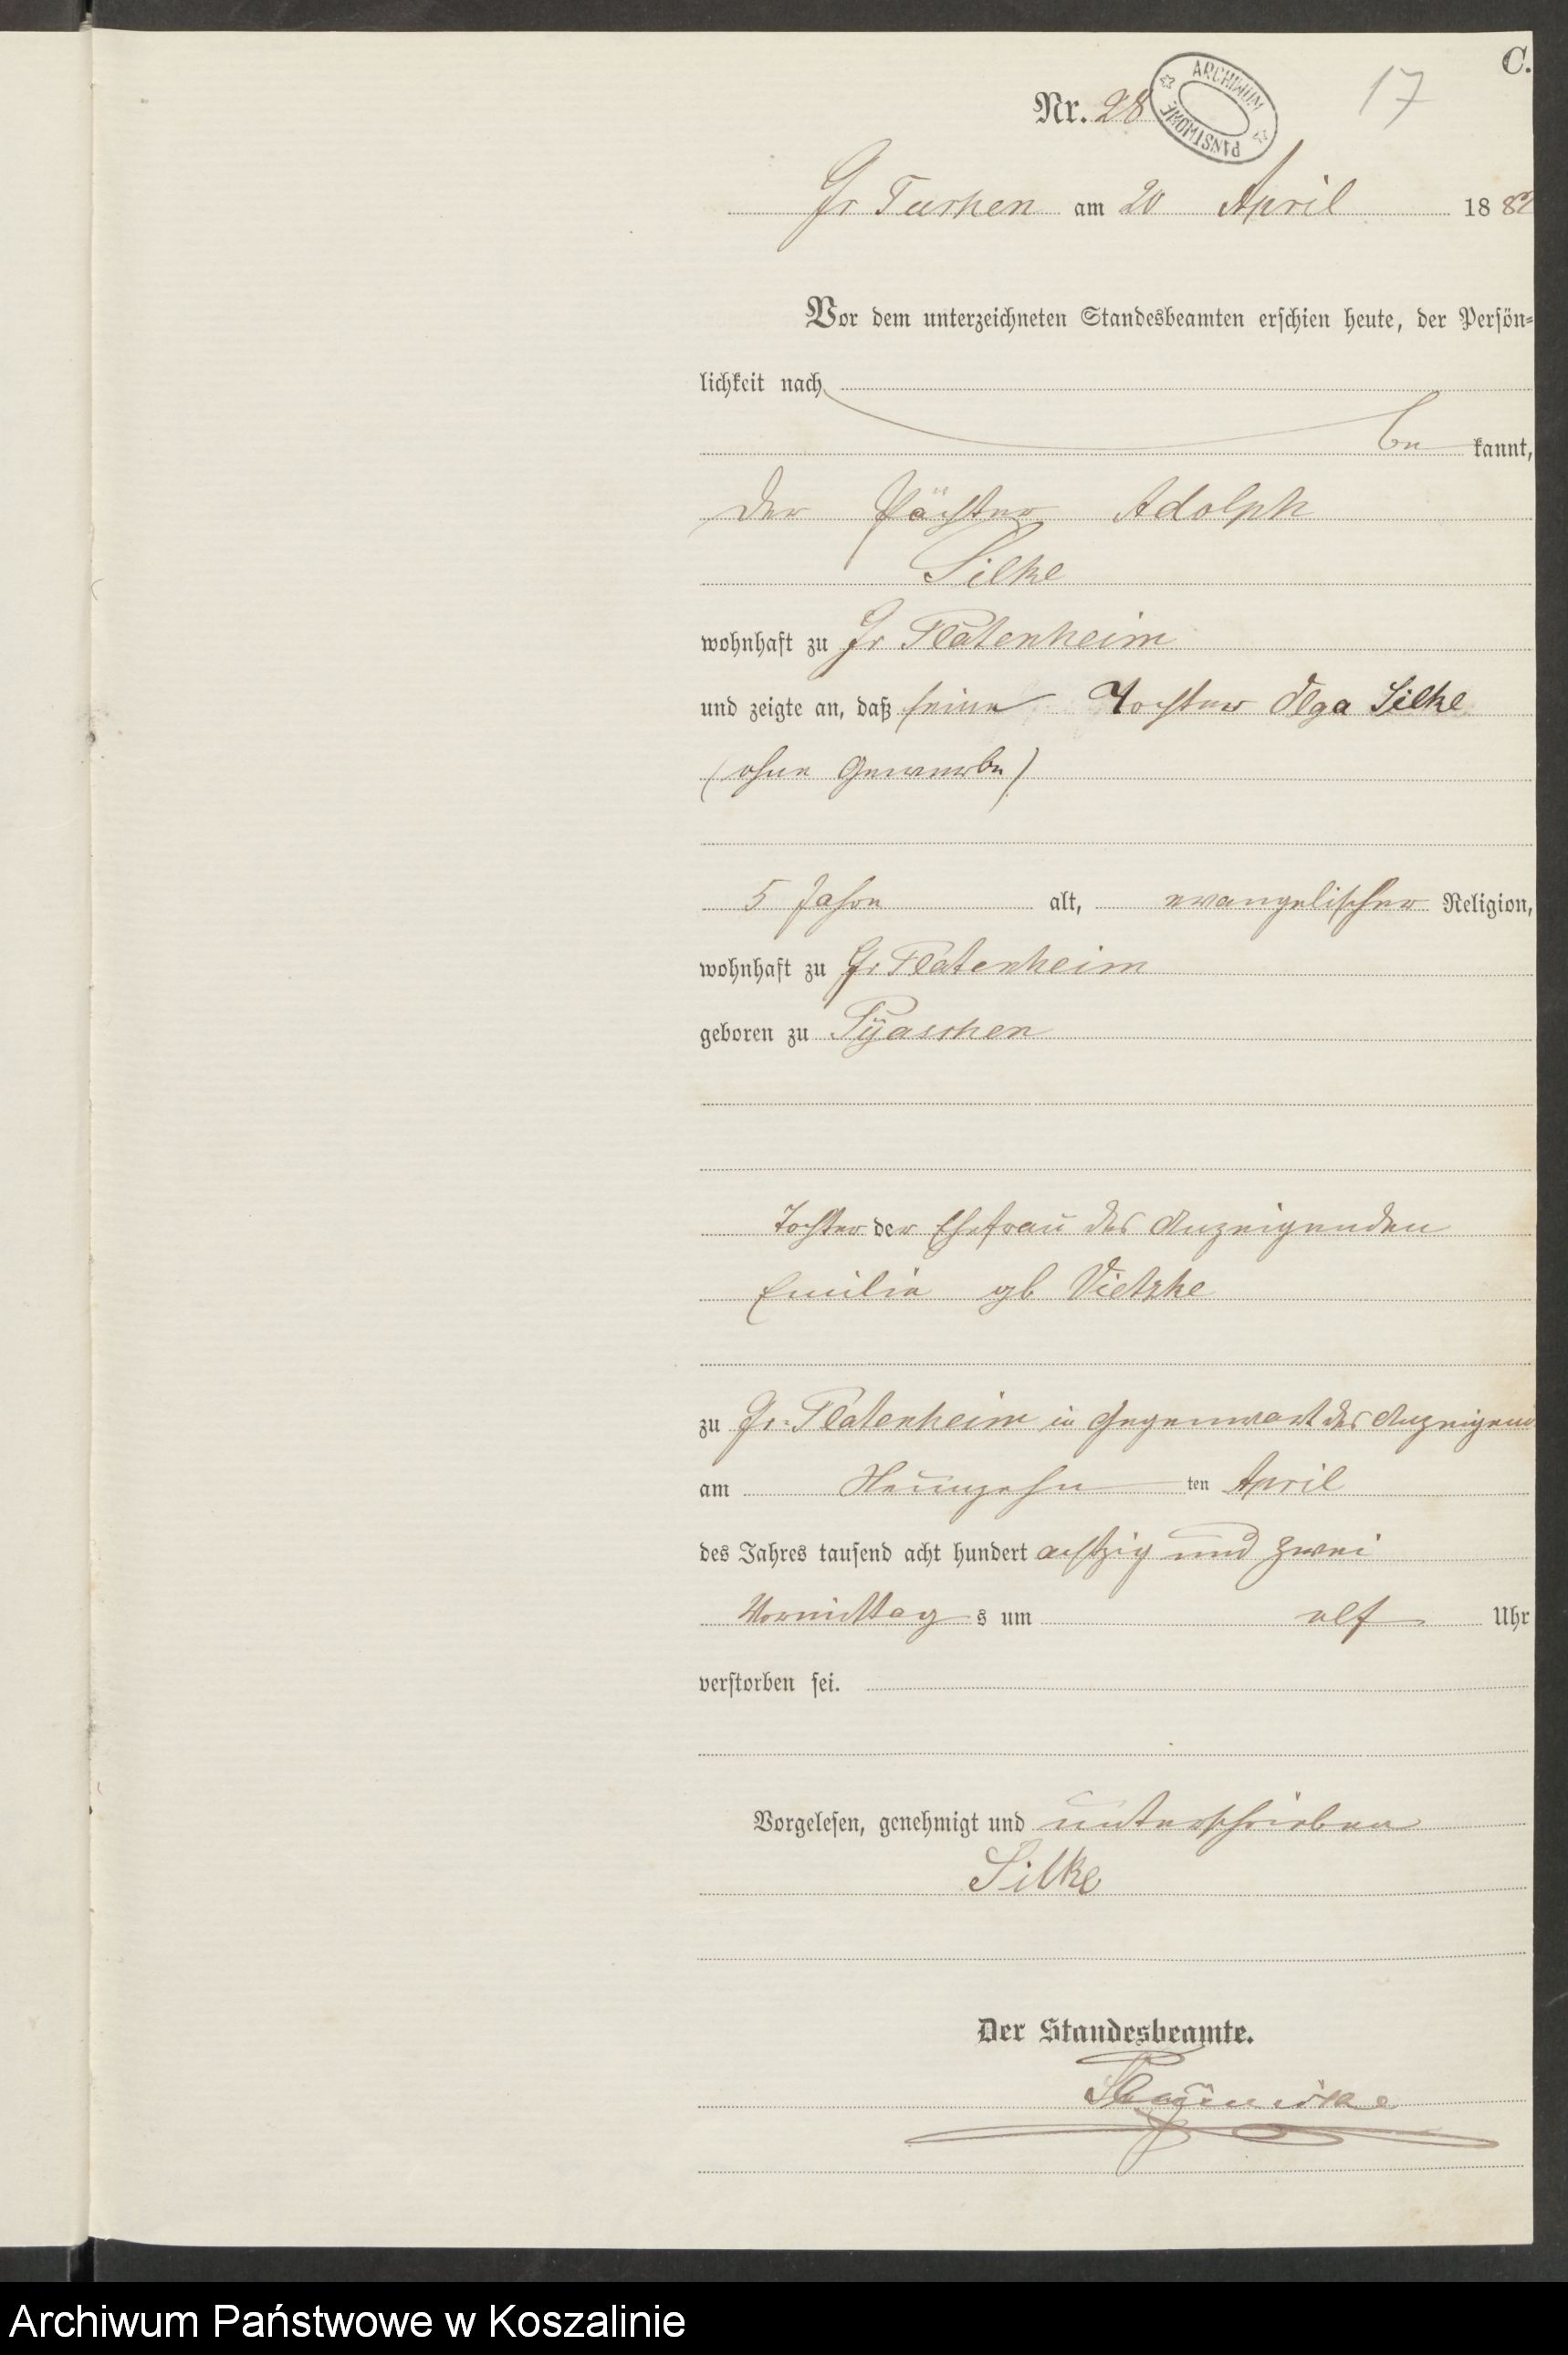 C.
17
Nr. 28
ARCHIWUM PAŃSTWOWE
Gr Tuchen am 20 April 1882
Vor dem unterzeichneten Standesbeamten erschien heute, der Persön=
lichkeit nach
be kannt,
der Pächter Adolph
Silke
wohnhaft zu Gr Platenheim
und zeigte an, daß seine Tochter Olga Silke
(ohne Gewerbe)
5 Jahre alt, evangelischer Religion,
wohnhaft zu Gr. Platenheim
geboren zu Pyaschen
Tochter der Ehefrau des Anzeigenden
Emilie gb Vietzke
zu Gr. Platenheim in Gegenwart des Anzeigend
am Neunzehn ten April
des Jahres tausend acht hundert achtzig und zwei
Vormittag s um elf Uhr
verstorben sei.
Vorgelesen, genehmigt und unterschrieben
Silke
Der Standesbeamte.
Archiwum Państwowe w Koszalinie